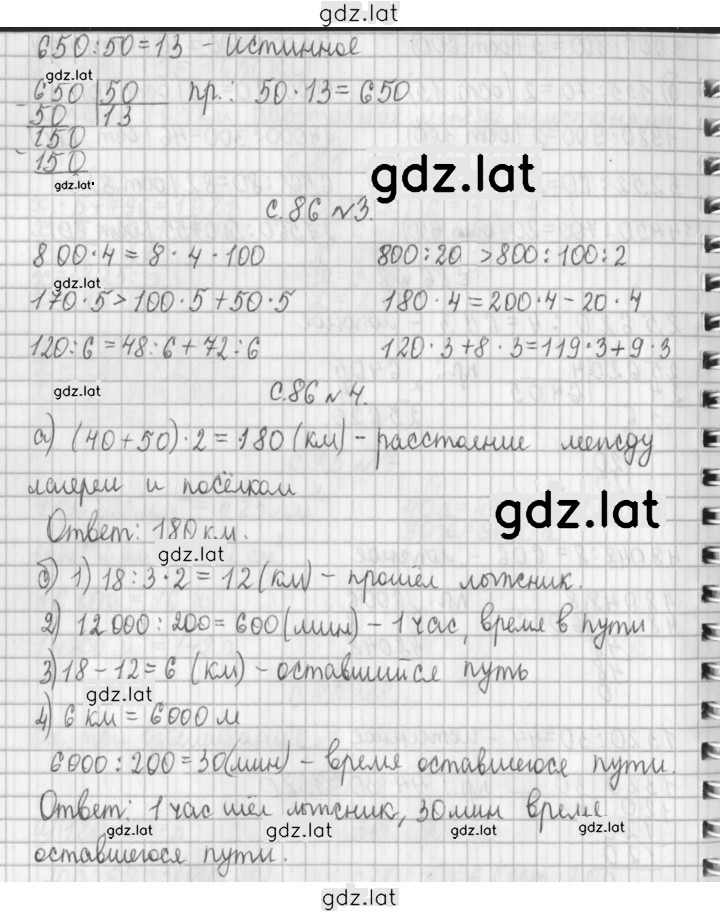 gdz.lat
650:50=13 - Истинное
gdz.lat
650 50 пр.: 50·13=650
50 13
150
150
gdz.lat
gdz.lat
С.86 №3.
800·4=8·4·100 800:20 >800:100:2
gdz.lat
170·5>100·5+50·5 180·4=200·4-20·4
120:6=48:6+72:6 120·3+8·3=119·3+9·3
gdz.lat
С.86 №4.
а) (40+50)·2=180(км) - расстояние между
лагерем и посёлком
gdz.lat
Ответ: 180км.
gdz.lat
б) 1) 18:3·2=12(км) - прошёл лыжник.
2) 12000:200=600(мин) - 1 час, время в пути
3) 18-12=6 (км) - оставшийся путь
gdz.lat
4) 6 км = 6000 м
6000:200=30(мин) - время оставшегося пути.
Ответ: 1 час шёл лыжник, 30 мин время
gdz.lat gdz.lat gdz.lat gdz.lat
оставшегося пути.
gdz.lat